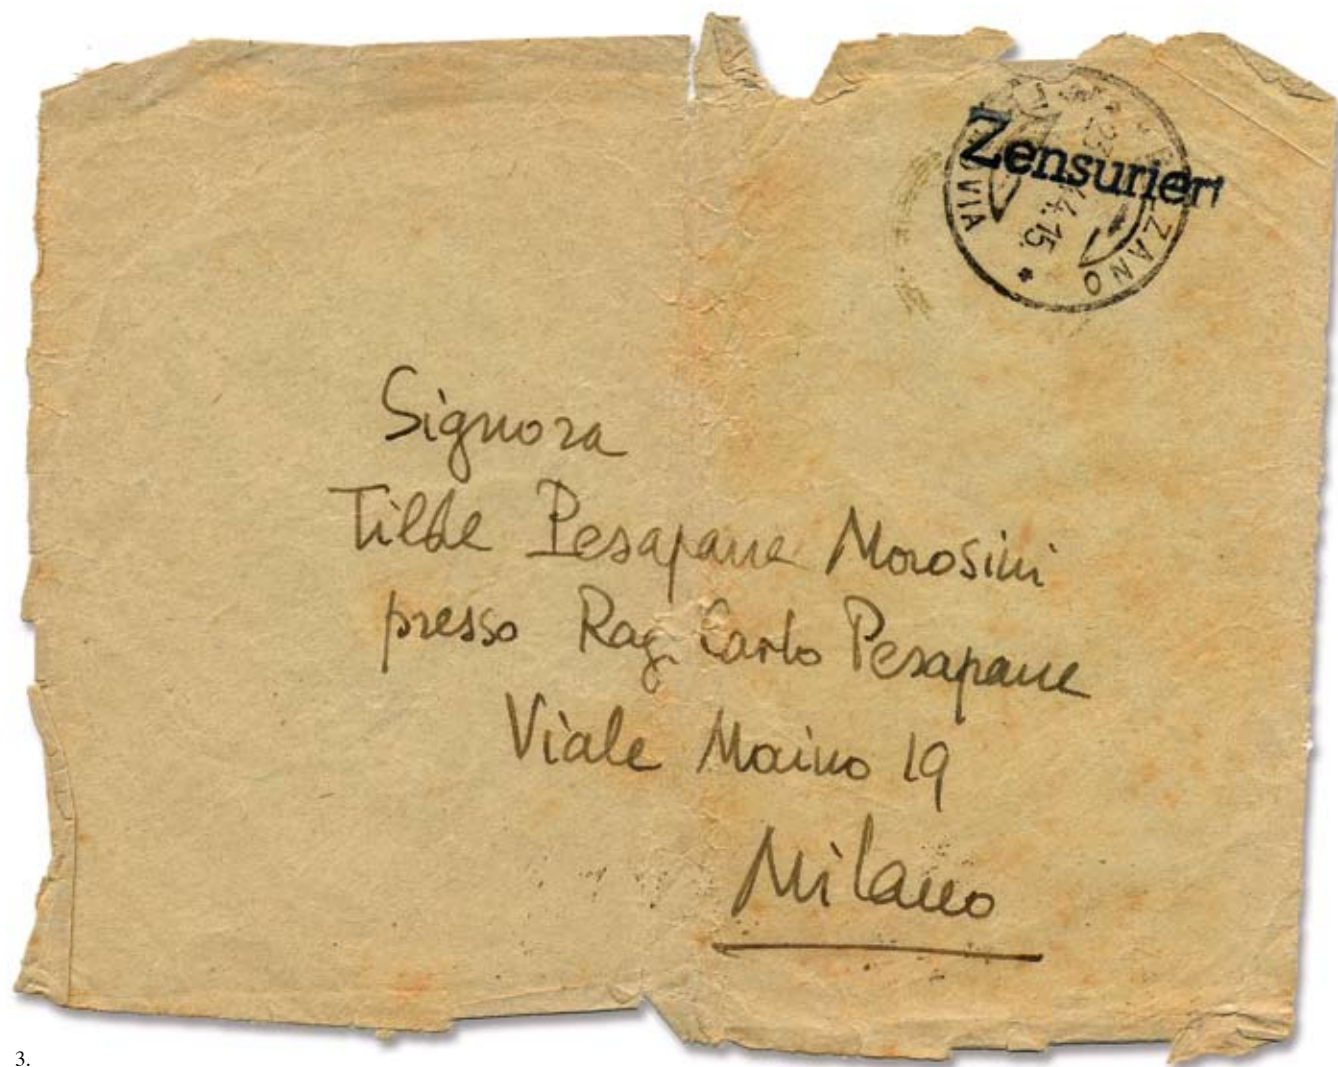 Zensuriert
Signora
Tilde Pesapane Morosini
presso Rag. Carlo Pesapane
Viale Maino 19
Milano
3.